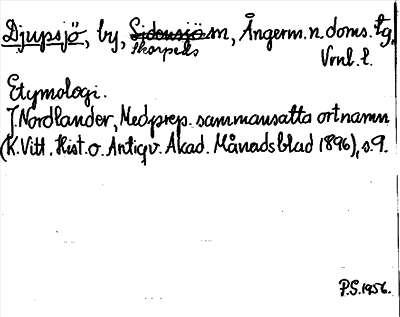 Djupsjö, by, Sidensjö sn, Ångerm. n. doms. tg,
Tharpeds Vrnl. l.
Etymologi.
J. Nordlander, Med prep. sammansatta ortnamn
(K. Vitt. Hist. o. Antiqv. Akad. Månadsblad 1896), s. 9.
P.S. 1956.